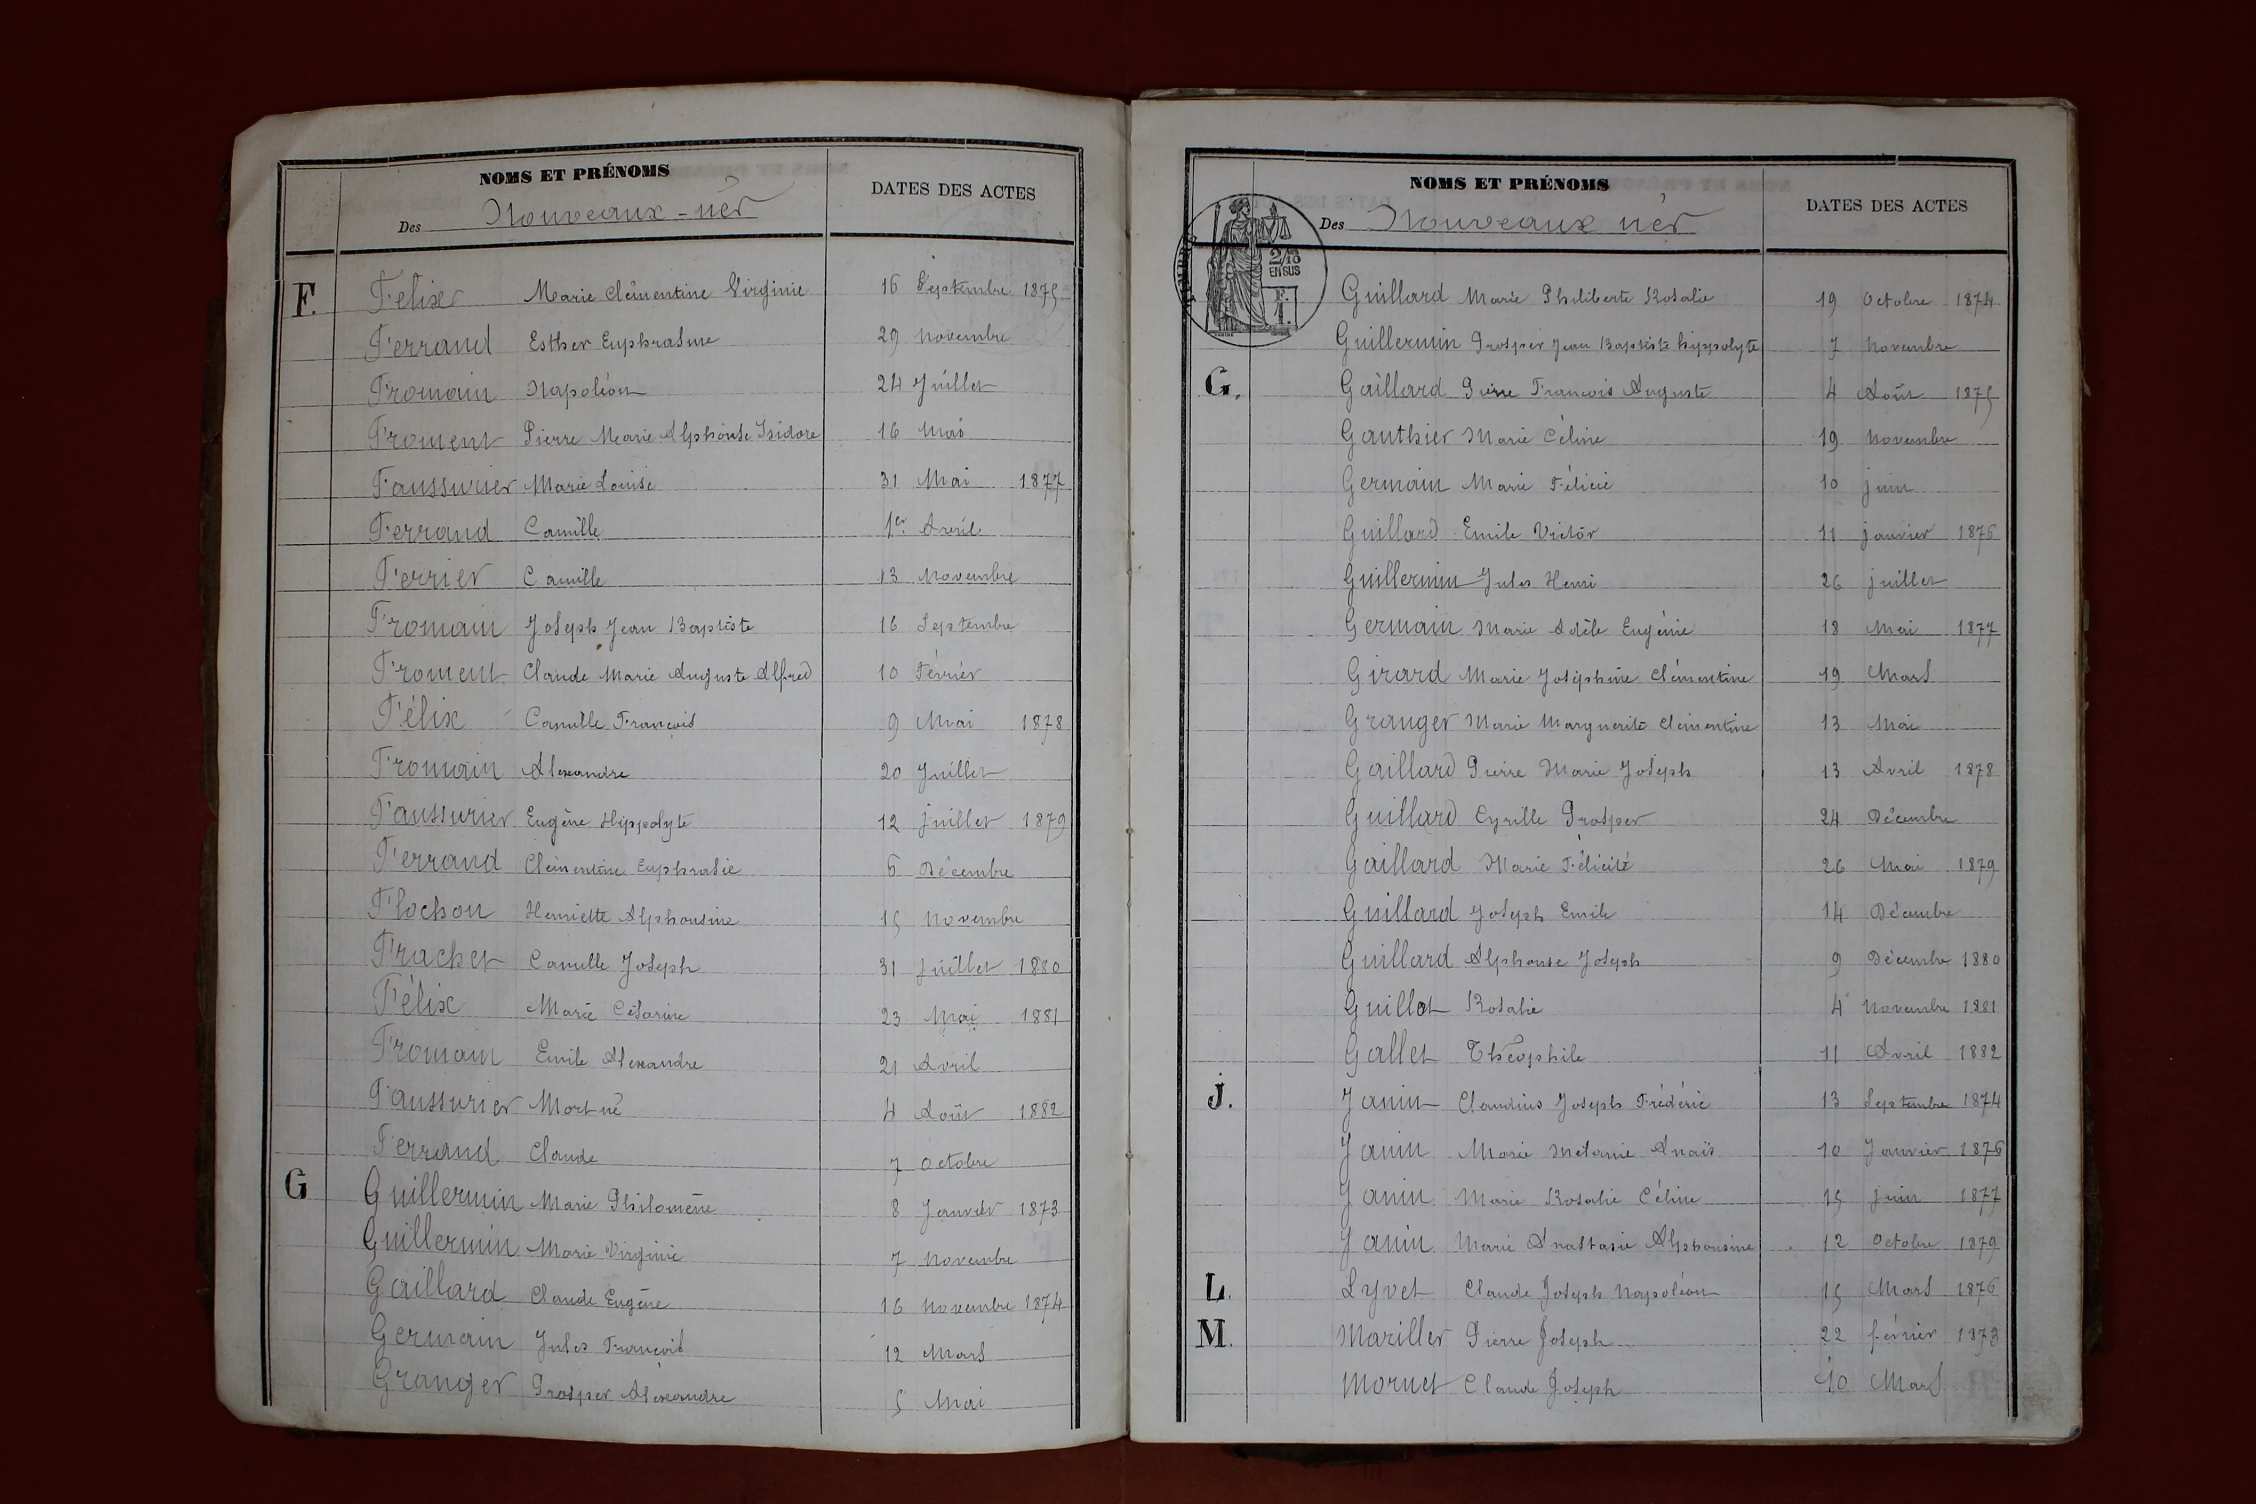 NOMS ET PRÉNOMS
DATES DES ACTES
Des Nouveaux-nés
F. Felix Marie Clémentine Virginie 16 Septembre 1875
Ferrand Esther Euphrasine 29 Novembre
Fromain Napoléon 24 Juillet
Froment Pierre Marie Alphonse Isidore 16 Mai
Faussurier Marie Louise 31 Mai 1877
Ferrand Camille 1er Avril
Ferrier Camille 13 Novembre
Fromain Joseph Jean Baptiste 16 Septembre
Froment Claude Marie Auguste Alfred 10 Février
Félix Camille François 9 Mai 1878
Fromain Alexandre 20 Juillet
Faussurier Eugène Hippolyte 12 juillet 1879
Ferrand Clémentine Euphrasie 6 Décembre
Flochon Henriette Alphonsine 15 Novembre
Frachet Camille Joseph 31 juillet 1880
Félix Marie Césarine 23 Mai 1881
Fromain Emile Alexandre 21 Avril
Faussurier Mort né 4 Août 1882
Ferrand Claude 7 Octobre
G Guillermin Marie Philomène 8 Janvier 1873
Guillermin Marie Virginie 7 Novembre
Gaillard Claude Eugène 16 Novembre 1874
Germain Jules François 12 Mars
Granger Prosper Alexandre 5 Mai
NOMS ET PRÉNOMS
DATES DES ACTES
Des Nouveaux nés
2/10 EN SUS
F. 1.
Guillard Marie Philiberte Rosalie 19 Octobre 1874
Guillermin Prosper Jean Baptiste hippolyte 7 Novembre
G. Gaillard Pierre François Auguste 4 Août 1875
Gauthier Marie Céline 19 Novembre
Germain Marie Félicie 10 juin
Guillard Emile Victor 11 janvier 1876
Guillermin Jules Henri 26 juillet
Germain Marie Adèle Eugénie 18 Mai 1877
Girard Marie Joséphine Clémentine 19 Mars
Granger Marie Marguerite Clémentine 13 Mai
Gaillard Pierre Marie Joseph 13 Avril 1878
Guillard Cyrille Prosper 24 Décembre
Gaillard Marie Félicité 26 Mai 1879
Guillard Joseph Emile 14 Décembre
Guillard Alphonse Joseph 9 Décembre 1880
Guillot Rosalie 4 Novembre 1881
Gallet Théophile 11 Avril 1882
J. Janin Claudius Joseph Frédéric 13 Septembre 1874
Janin Marie Mélanie Anaïs 10 Janvier 1876
Janin Marie Rosalie Céline 15 juin 1877
Janin Marie Anastasie Alphonsine 12 Octobre 1879
L. Lyvet Claude Joseph Napoléon 15 Mars 1876
M. Mariller Pierre Joseph 22 février 1873
Mornet Claude Joseph 10 Mars